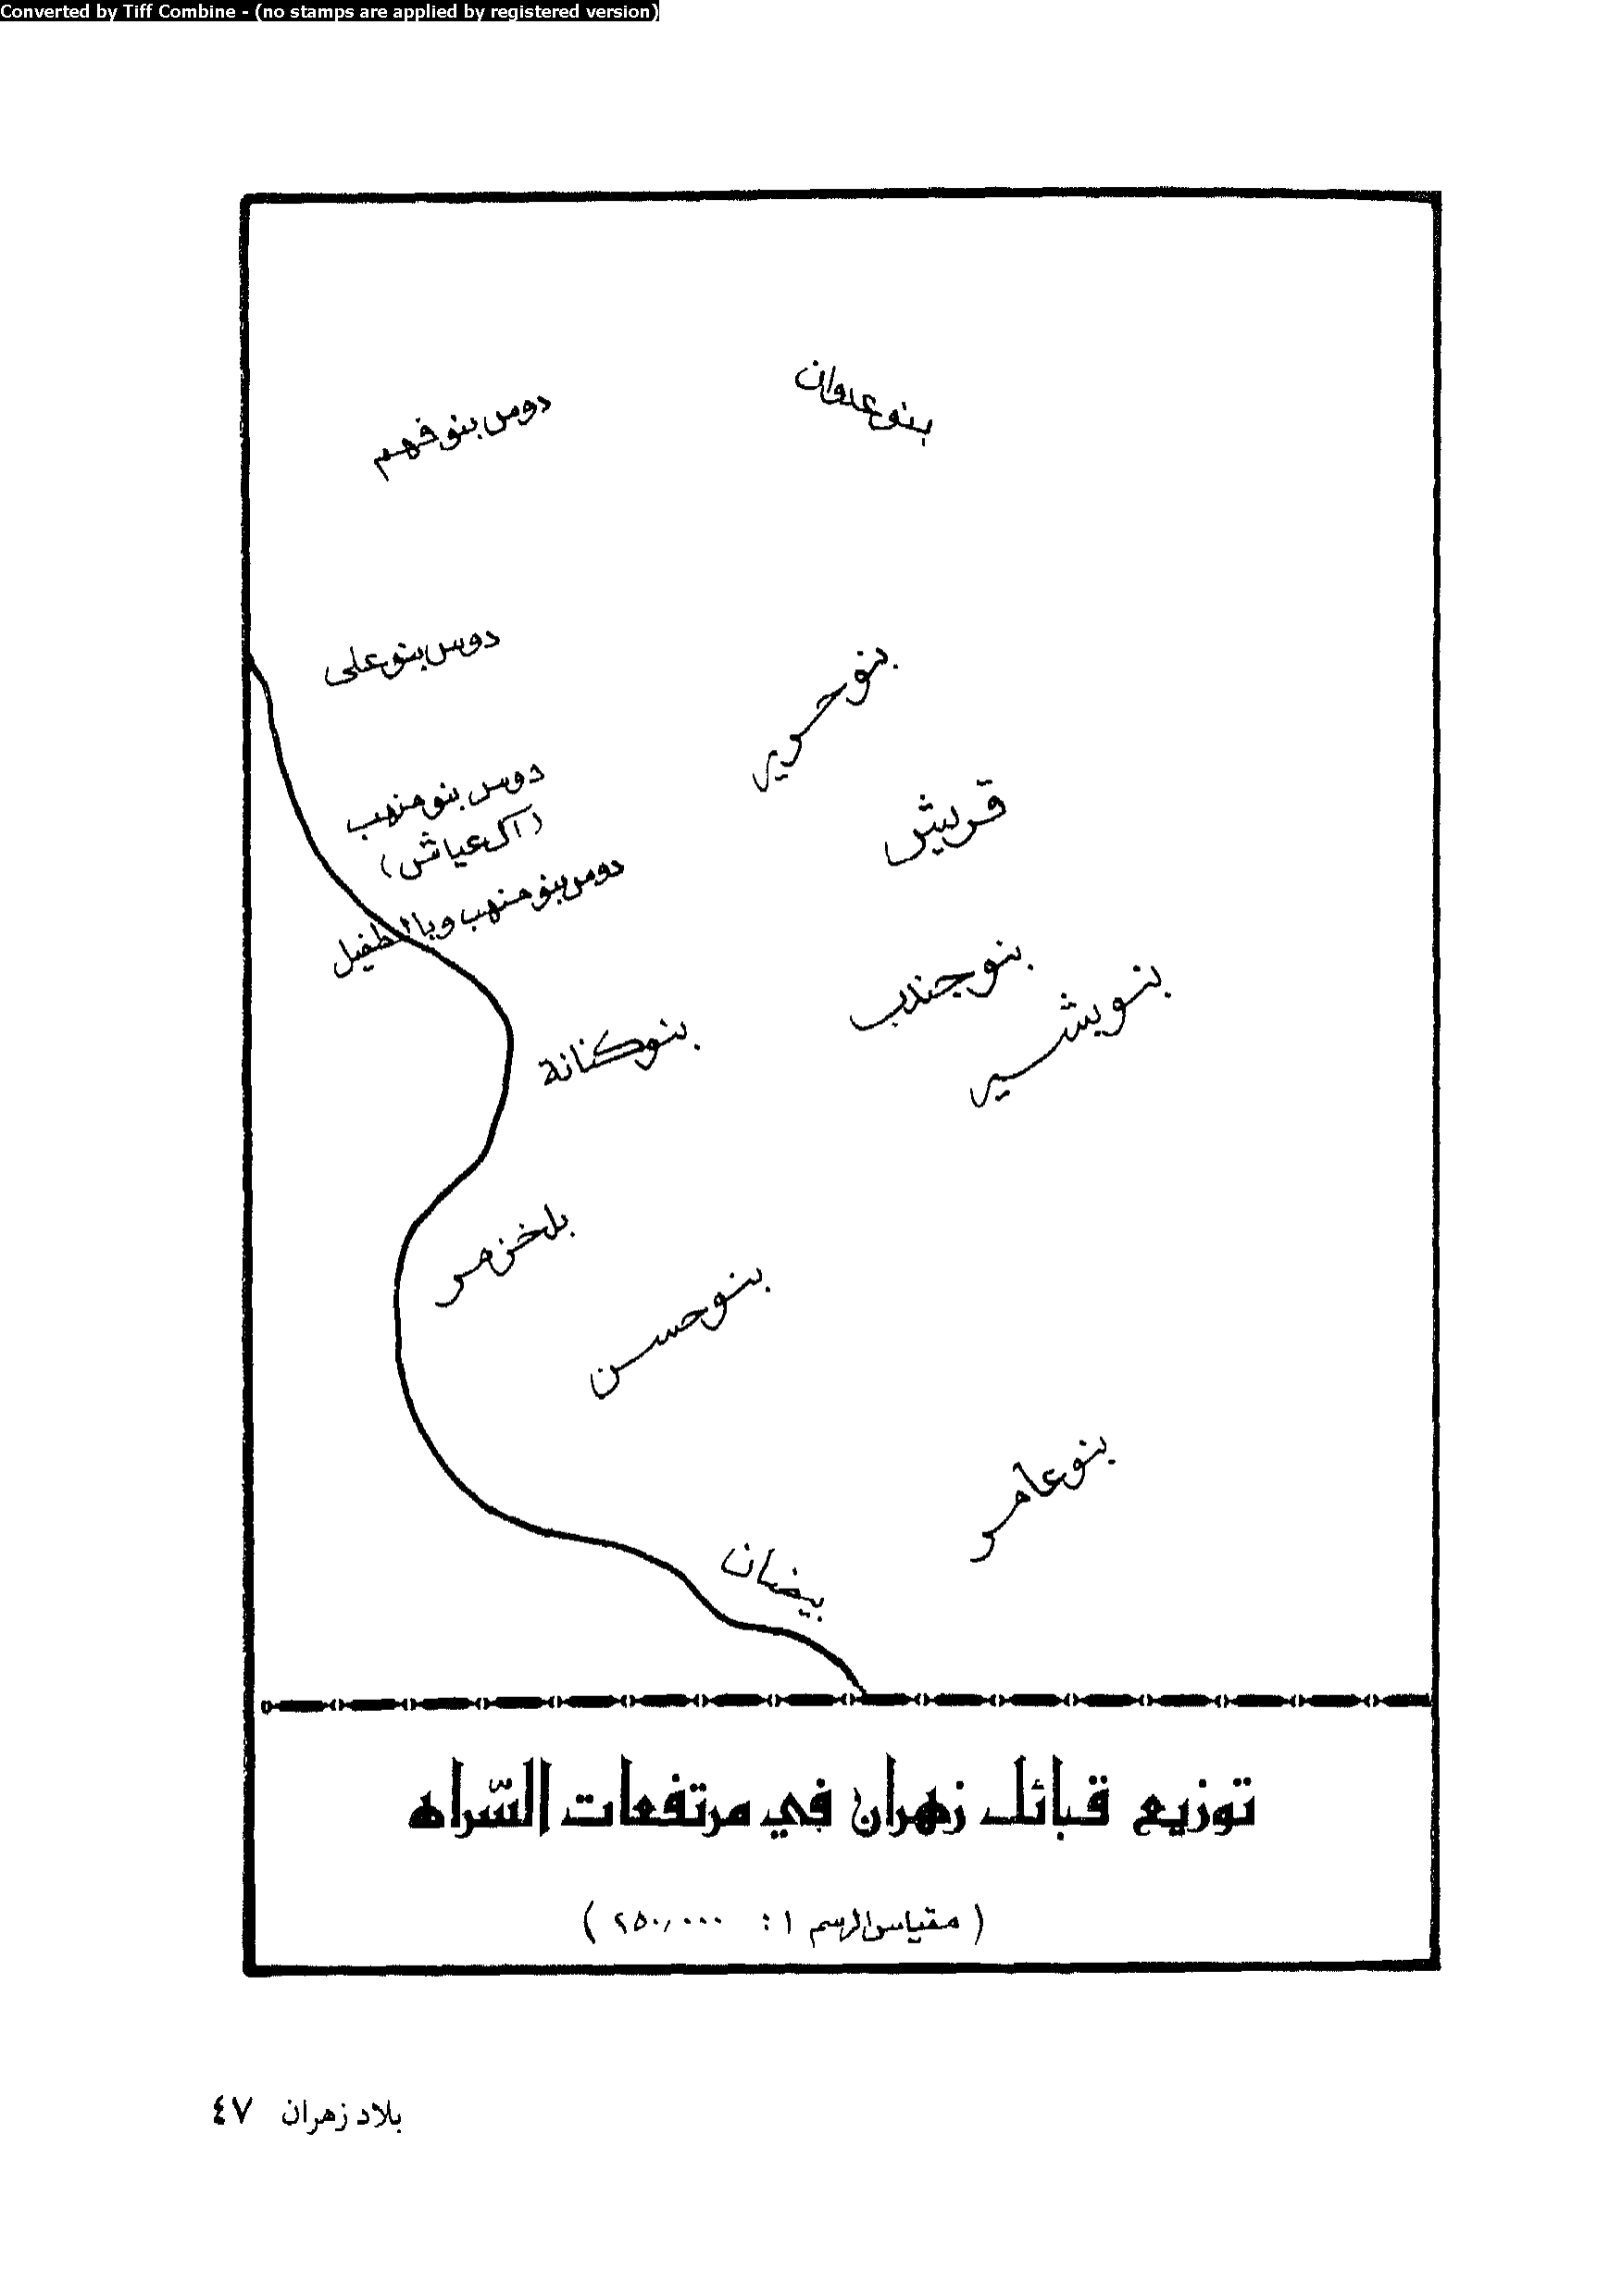 Converted by Tiff Combine - (no stamps are applied by registered version)
بنو عدوان
دوس بنو فهم
دوس بنو على
بنو حرير
دوس بنو منهب
(آل عياش)
قريش
دوس بنو منهب وبالطفيل
بنو جندب
بنو بشير
بنو كنانة
بلخزمر
بنو حسن
بنو عامر
بيضان
توزيع قبائل زهران في مرتفعات السّراه
( مقياس الرسم ١ : ٢٥٠,٠٠٠ )
بلاد زهران ٤٧